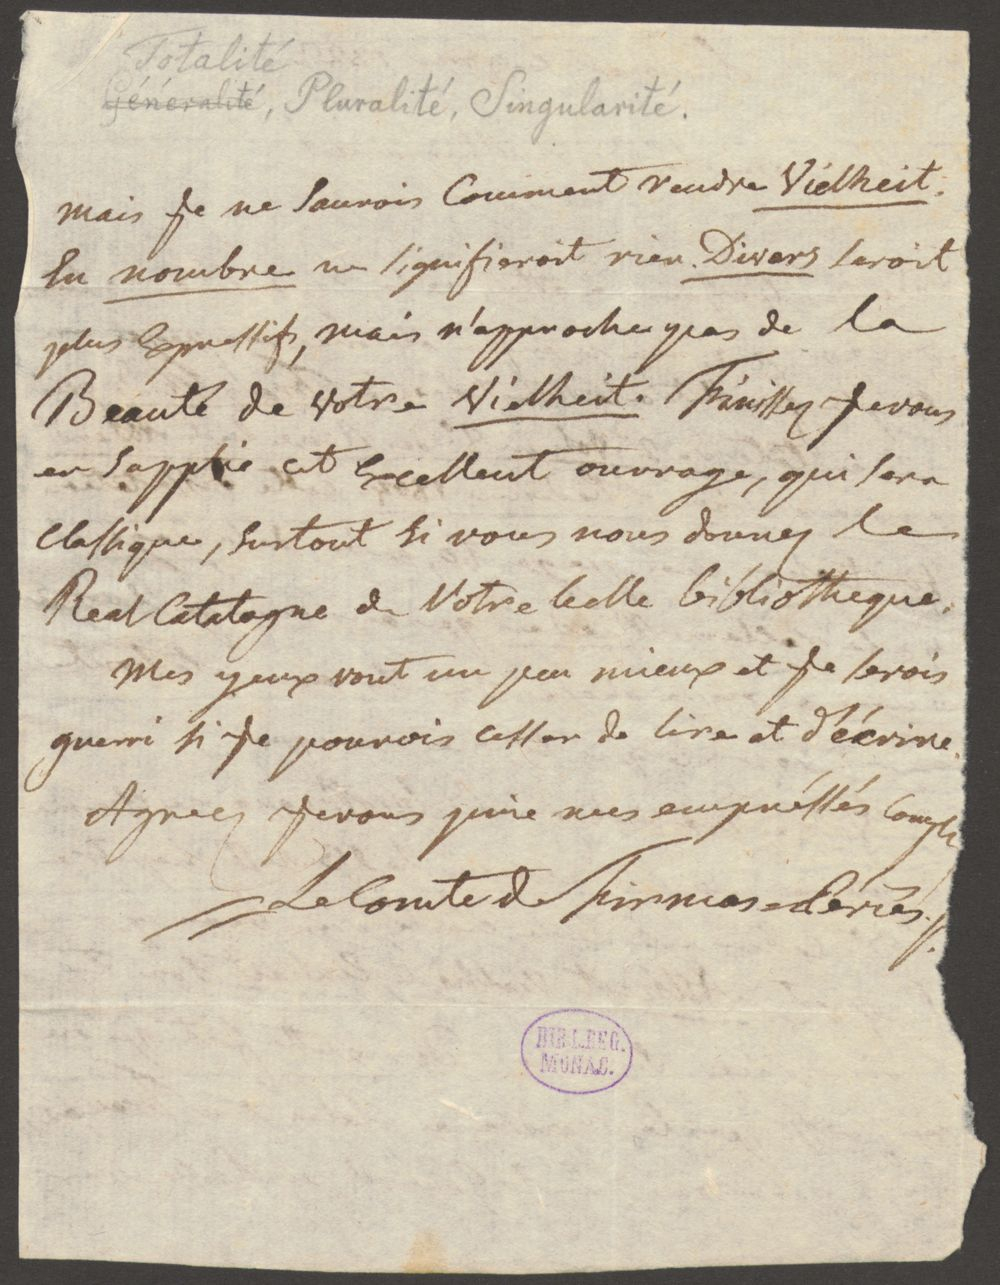 Totalité
Généralité, Pluralité, Singularité.
mais je ne saurois Comment rendre Vielheit.
En nombre ne signifieroit rien. Divers seroit
plus Expressif, mais n'approche pas de la
Beauté de votre Vielheit. Finissez je vous
en supplie cet Excellent ouvrage, qui sera
classique, surtout si vous nous donnez le
Real Catalogue de Votre belle bibliotheque.
Mes yeux vont un peu mieux et je serois
guerri si je pouvois cesser de lire et d'écrire.
Agreez je vous prie mes empréssés Compli
Le Comte de Firmas-Périés.
BIBL.REG.
MONAC.